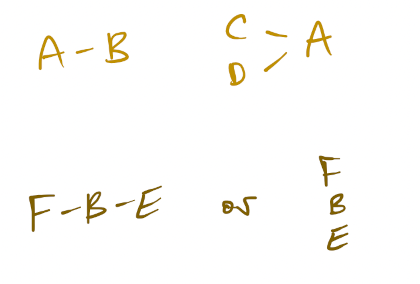 A - B
C
D
A
F - B - E or
F
B
E